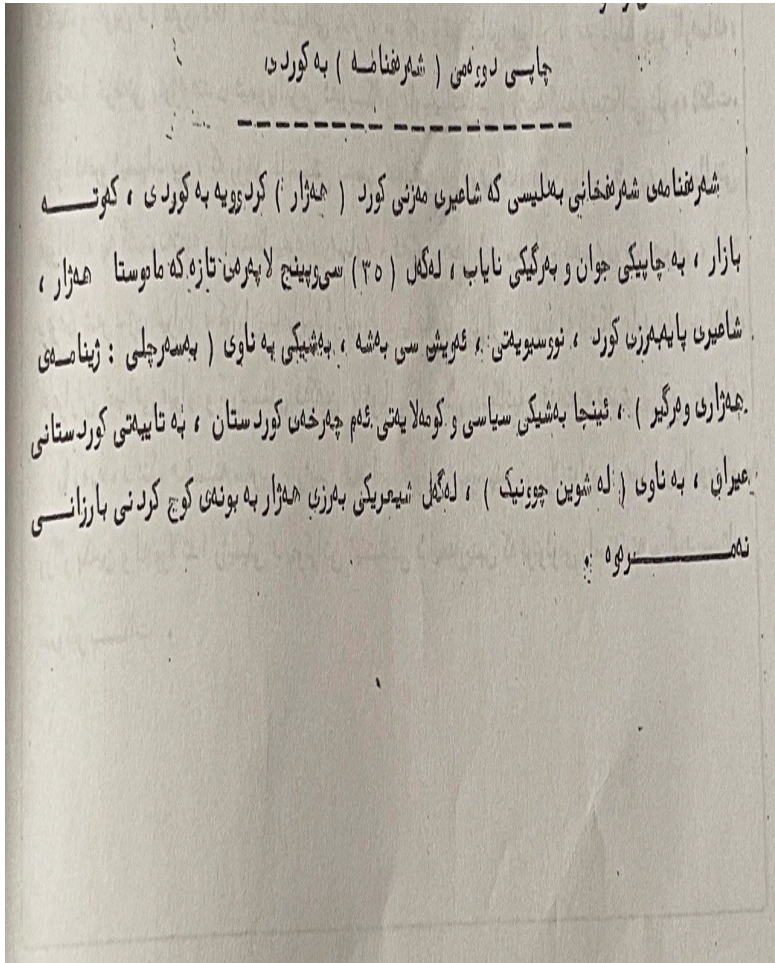 چاپی دووەمی ( شەرەفنامە ) بە کوردی
شەرەفنامەی شەرەفخانی بەدلیسی کە شاعیری مەزنی کورد ( هەژار ) کردوویە بە کوردی ، کەوتە
بازار ، بە چاپیکی جوان و بەرگیکی نایاب ، لەگەل ( ٣٥ ) سی‌وپینج لاپەرەی تازە کە ماموستا هەژار ،
شاعیری پایەبەرزی کورد ، نووسیویەتی ، ئەویش سی بەشە ، بەشیکی بە ناوی ( بەسەرچلی : ژینامەی
هەژاری وەرگیر ) ، ئینجا بەشیکی سیاسی و کومەلایەتی ئەم چەرخەی کوردستان ، بە تایبەتی کوردستانی
عیراق ، بە ناوی ( لە شوین چوونیک ) ، لەگەل شیعریکی بەرزی هەژار بە بونەی کوچ کردنی بارزانی
نەمرەوە .